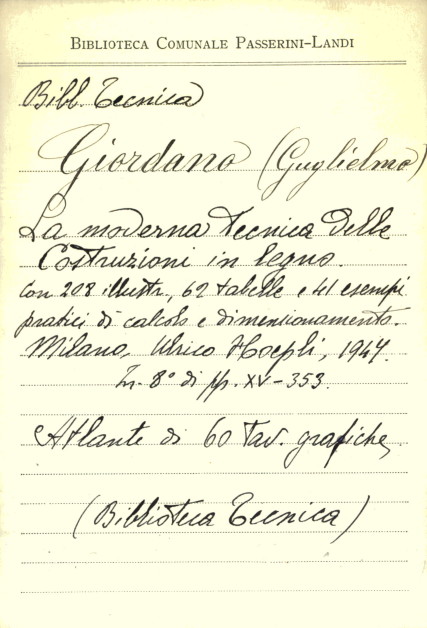 BIBLIOTECA COMUNALE PASSERINI-LANDI
Bibl. Tecnica
Giordano (Guglielmo)
La moderna tecnica delle
Costruzioni in legno.
Con 208 illustr., 62 tabelle e 41 esempi
pratici di calcolo e dimensionamento.
Milano, Ulrico Hoepli, 1947.
In-8° di pp. XV-353.
Atlante di 60 tav. grafiche,
(Biblioteca Tecnica)